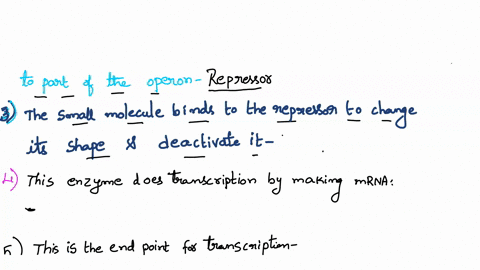 to part of the operon- Repressor
3) The small molecule binds to the repressor to change
its shape & deactivate it-
4) This enzyme does transcription by making mRNA:
-
5) This is the end point for transcription-